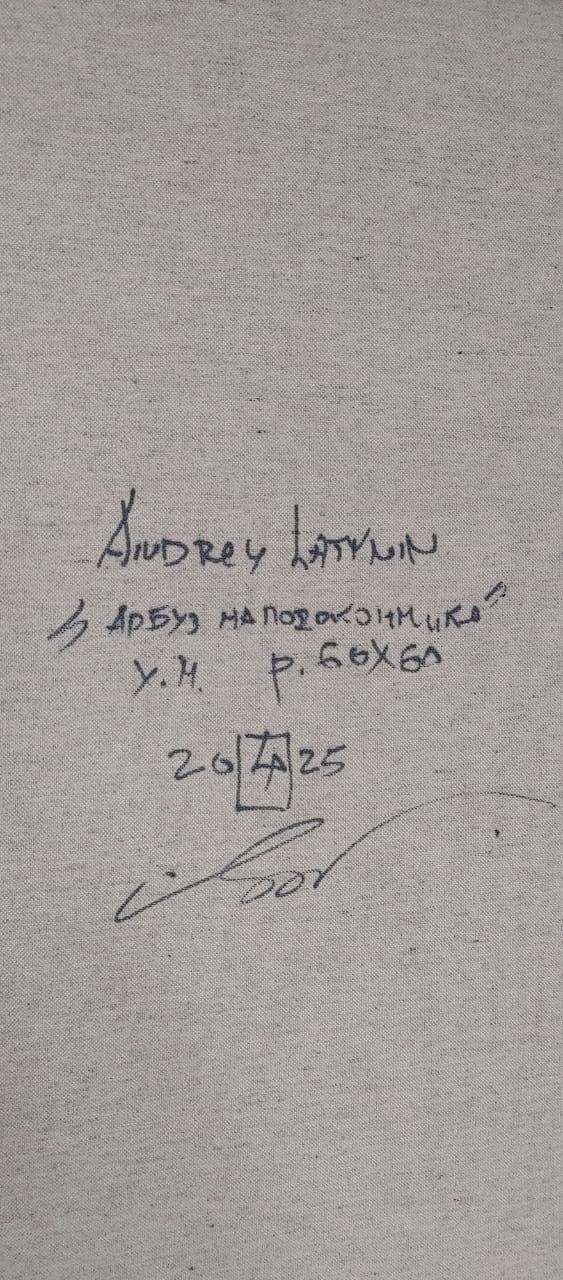 Andrey Latynin
"Арбуз на подоконнике"
х.м. р. 60х60
20 LA 25